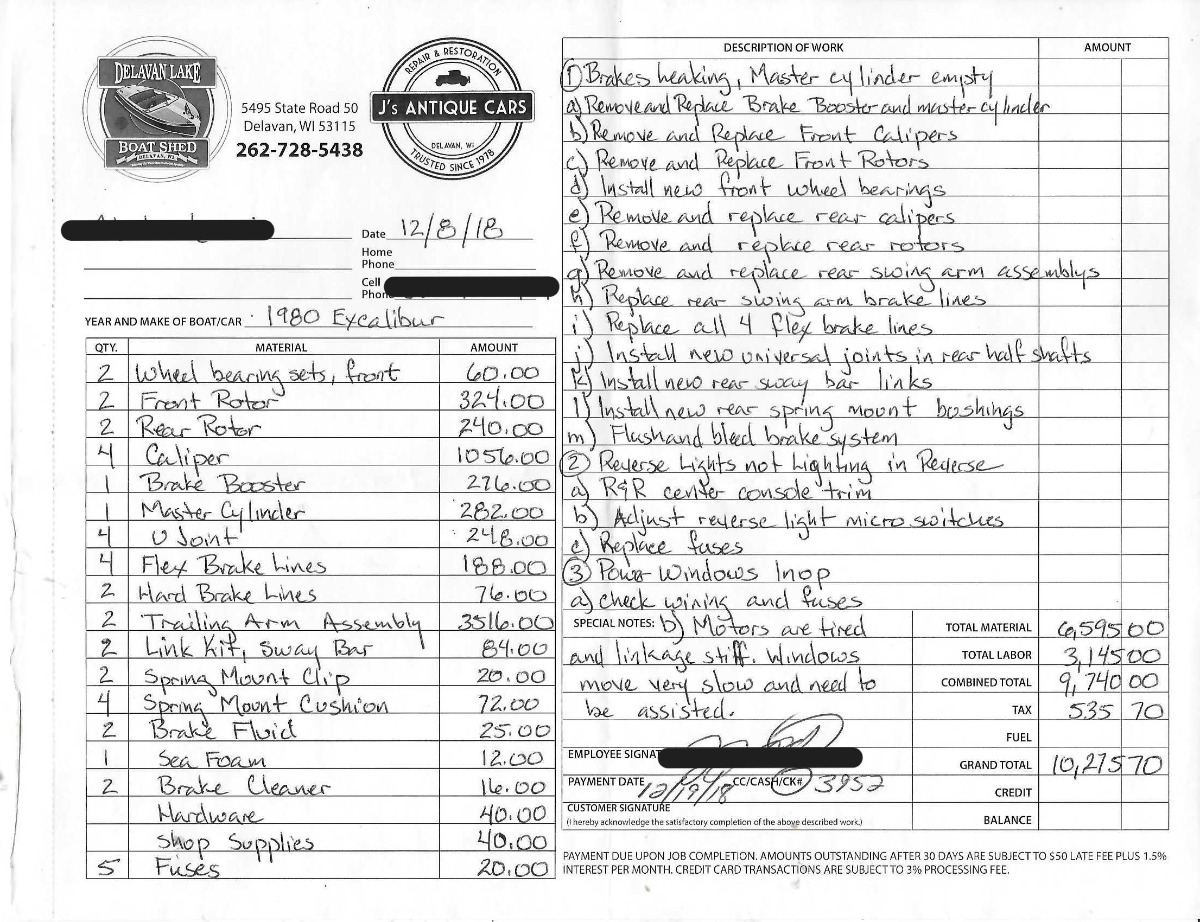 DELAVAN LAKE
BOAT SHED
DELAVAN, WI.
5495 State Road 50
Delavan, WI 53115
262-728-5438
REPAIR & RESTORATION
J's ANTIQUE CARS
DELAVAN, WI
TRUSTED SINCE 1978
Date 12/8/18
Home
Phone
Cell
Phone
YEAR AND MAKE OF BOAT/CAR 1980 Excalibur
QTY. MATERIAL AMOUNT
2 Wheel bearing sets, front 60.00
2 Front Rotor 324.00
2 Rear Rotor 240.00
4 Caliper 1056.00
1 Brake Booster 276.00
1 Master Cylinder 282.00
4 U Joint 248.00
4 Flex Brake Lines 188.00
2 Hard Brake Lines 76.00
2 Trailing Arm Assembly 3516.00
2 Link Kit, Sway Bar 84.00
2 Spring Mount Clip 20.00
4 Spring Mount Cushion 72.00
2 Brake Fluid 25.00
1 Sea Foam 12.00
2 Brake Cleaner 16.00
Hardware 40.00
Shop Supplies 40.00
5 Fuses 20.00
DESCRIPTION OF WORK AMOUNT
1) Brakes leaking, Master cylinder empty
a) Remove and Replace Brake Booster and master cylinder
b) Remove and Replace Front Calipers
c) Remove and Replace Front Rotors
d) Install new front wheel bearings
e) Remove and replace rear calipers
f) Remove and replace rear rotors
g) Remove and replace rear swing arm assemblys
h) Replace rear swing arm brake lines
i) Replace all 4 flex brake lines
j) Install new universal joints in rear half shafts
k) Install new rear sway bar links
l) Install new rear spring mount bushings
m) Flush and bleed brake system
2 Reverse Lights not Lighting in Reverse
a) R&R center console trim
b) Adjust reverse light micro switches
c) Replace fuses
3 Power Windows Inop
a) check wiring and fuses
SPECIAL NOTES: b) Motors are tired
and linkage stiff. Windows
move very slow and need to
be assisted.
TOTAL MATERIAL 6,595 00
TOTAL LABOR 3,145 00
COMBINED TOTAL 9,740 00
TAX 535 70
FUEL
GRAND TOTAL 10,275 70
CREDIT
BALANCE
EMPLOYEE SIGNAT
PAYMENT DATE 12/19/18 CC/CASH/CK# 3952
CUSTOMER SIGNATURE
(I hereby acknowledge the satisfactory completion of the above described work.)
PAYMENT DUE UPON JOB COMPLETION. AMOUNTS OUTSTANDING AFTER 30 DAYS ARE SUBJECT TO $50 LATE FEE PLUS 1.5%
INTEREST PER MONTH. CREDIT CARD TRANSACTIONS ARE SUBJECT TO 3% PROCESSING FEE.